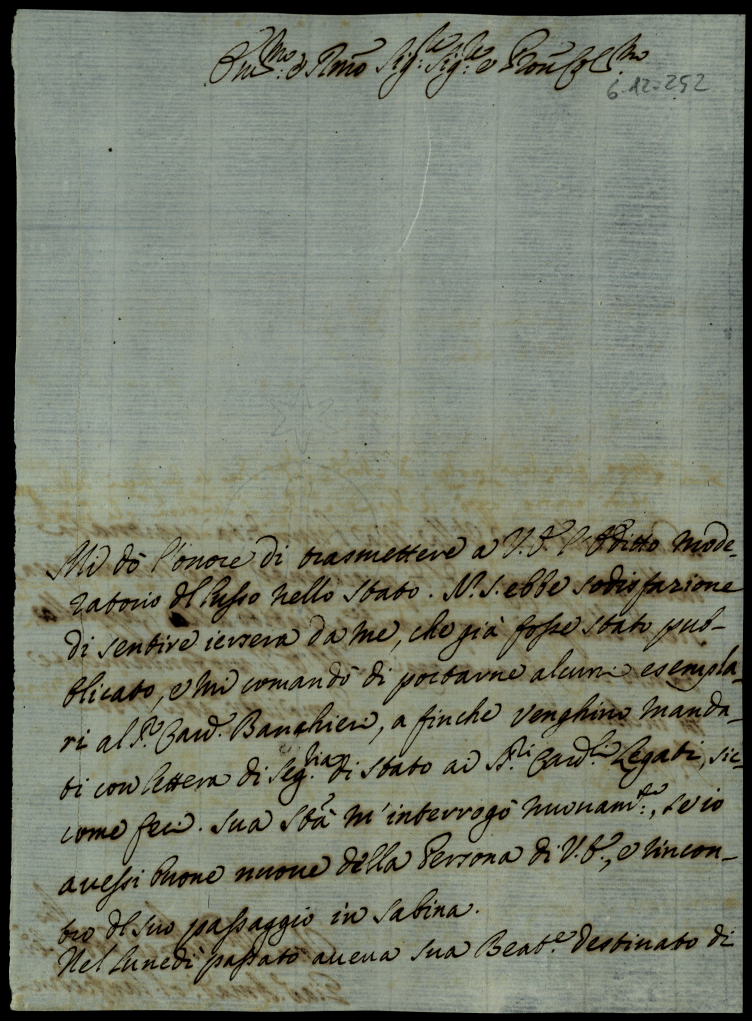 Em.mo e Rmo Sig.re Sig.re e Pron Col.mo
6-12-252
Mi dò l'onore di trasmettere a V. E. l'Editto mode-
ratorio del lusso nello stato. N. S. ebbe sodisfazione
di sentire iersera da me, che già fosse stato pub-
blicato, e mi comandò di portarne alcuni esempla-
ri al Sr. Card. Banchieri, a finche venghino manda-
ti con lettera di Seg.ria di stato ai S.ri Card.li Legati, sic-
come feci. Sua Stà m'interrogò nuovam.te, se io
avessi buone nuove della Persona di V. E., e rincon-
tro del suo passaggio in Sabina.
Nel Lunedì passato aveva sua Beat.e destinato di